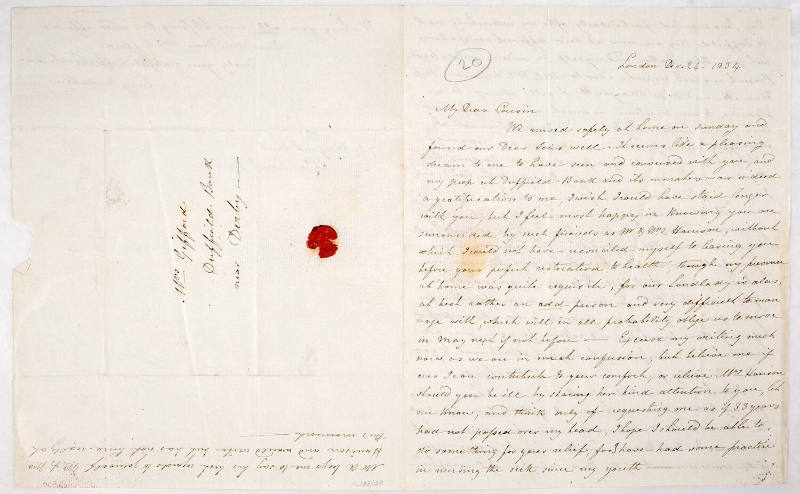 20
London Dec. 26. 1834.
My Dear Cousin
We arrived safely at home on Sunday and
found our Dear Sons well. It seems like a pleasing
dream to me to have seen and conversed with you, and
my peep at Duffield Bank and its inmates was indeed
a gratification to me I wish I could have staid longer
with you, but I feel most happy in knowing you are
surrounded by such friends as Mr & Mrs Harrison, without
which I could not have reconciled myself to leaving you
before your perfect restoration to health, though my presence
at home was quite requisite, for our Landlady is alas,
at best rather an odd person and very difficult to man
=age with, which will in all probability oblige us to move
in May next if not before — Excuse my writing much
now as we are in much confusion, but believe me if
ever I can contribute to your comfort, or relieve Mrs Harrison
should you be ill by sharing her kind attention to you, let
me know, and think only of requesting me as if 33 years
had not passed over my head, I hope I should be able to
do something for your relief, for I have had some practice
in nursing the sick since my youth —
Mrs Gifford.
Duffield Bank
near Derby —
Mr B. begs me to say his best wishes to yourself Mr & Mrs
Harrison and would write but has not time really at
this moment —